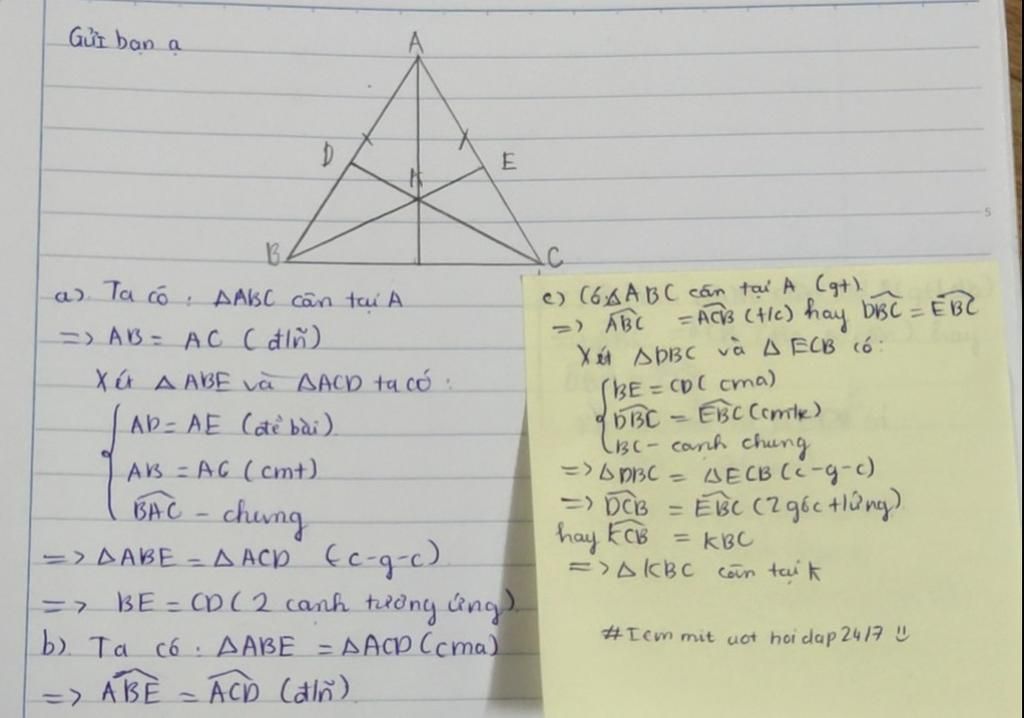 Gửi bạn ạ
A
D
E
K
B
C
5
a) Ta có : ΔABC cân tại A
=> AB = AC (đ/lĩ)
Xét ΔABE và ΔACD ta có :
AD = AE (đề bài)
AB = AC (cmt)
BAC - chung
=> ΔABE = ΔACD (c-g-c)
=> BE = CD (2 cạnh tương ứng)
b) Ta có : ΔABE = ΔACD (cma)
=> ABE = ACD (đ/lĩ)
c) Có ΔABC cân tại A (gt)
=> ABC = ACB (t/c) hay DBC = EBC
Xét ΔDBC và ΔECB có:
BE = CD (cma)
DBC = EBC (cmtr)
BC - cạnh chung
=> ΔDBC = ΔECB (c-g-c)
=> DCB = EBC (2 góc t/ứng)
hay KCB = KBC
=> ΔKBC cân tại K
#Icm mit uot hoi dap 24/7